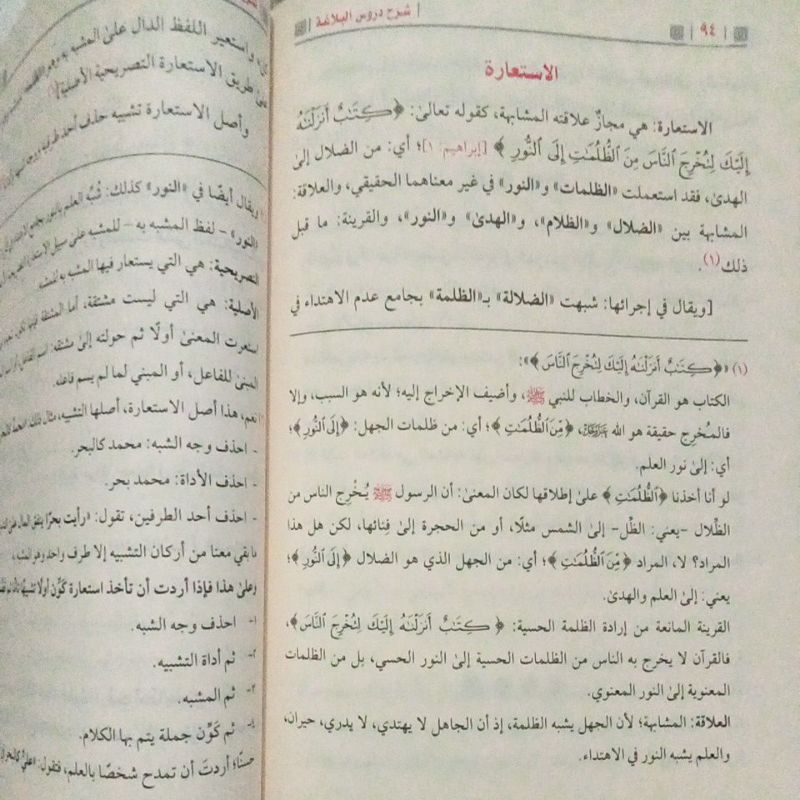 ٩٤
شرح دروس البلاغة
الاستعارة
الاستعارة: هي مجازٌ علاقته المشابهة، كقوله تعالىٰ: ﴿كِتَٰبٌ أَنزَلْنَٰهُ
إِلَيْكَ لِتُخْرِجَ ٱلنَّاسَ مِنَ ٱلظُّلُمَٰتِ إِلَى ٱلنُّورِ﴾ [إبراهيم: ١]؛ أي: من الضلال إلىٰ
الهدىٰ، فقد استعملت «الظلمات» و«النور» في غير معناهما الحقيقي، والعلاقة:
المشابهة بين «الضلال» و«الظلام»، و«الهدىٰ» و«النور»، والقرينة: ما قبل
ذلك(١).
[ويقال في إجرائها: شبهت «الضلالة» بـ«الظلمة» بجامع عدم الاهتداء في
(١) «﴿كِتَٰبٌ أَنزَلْنَٰهُ إِلَيْكَ لِتُخْرِجَ ٱلنَّاسَ﴾»:
الكتاب هو القرآن، والخطاب للنبي ﷺ، وأضيف الإخراج إليه؛ لأنه هو السبب، وإلا
فالمُخرِج حقيقة هو الله، ﴿مِنَ ٱلظُّلُمَٰتِ﴾؛ أي: من ظلمات الجهل: ﴿إِلَى ٱلنُّورِ﴾؛
أي: إلىٰ نور العلم.
لو أنا أخذنا ﴿ٱلظُّلُمَٰتِ﴾ علىٰ إطلاقها لكان المعنىٰ: أن الرسول ﷺ يُخْرِج الناس من
الظِّلال -يعني: الظِّل- إلىٰ الشمس مثلًا، أو من الحجرة إلىٰ فِنائها، لكن هل هذا
المراد؟ لا، المراد ﴿مِنَ ٱلظُّلُمَٰتِ﴾؛ أي: من الجهل الذي هو الضلال ﴿إِلَى ٱلنُّورِ﴾؛
يعني: إلىٰ العلم والهدىٰ.
القرينة المانعة من إرادة الظلمة الحسية: ﴿كِتَٰبٌ أَنزَلْنَٰهُ إِلَيْكَ لِتُخْرِجَ ٱلنَّاسَ﴾،
فالقرآن لا يخرج به الناس من الظلمات الحسية إلىٰ النور الحسي، بل من الظلمات
المعنوية إلىٰ النور المعنوي.
العلاقة: المشابهة؛ لأن الجهل يشبه الظلمة، إذ أن الجاهل لا يهتدي، لا يدري، حيران،
والعلم يشبه النور في الاهتداء.
واستعير اللفظ الدال علىٰ المشبه به
طريق الاستعارة التصريحية الأصلية
وأصل الاستعارة تشبيه حذف أحد
ويقال أيضًا في «النور» كذلك: شُبِّه العلم بالنور بجامع
«النور» - لفظ المشبه به - للمشبه علىٰ سبيل
التصريحية: هي التي يستعار فيها المشبه به
الأصلية: هي التي ليست مشتقة، أما المشتقة
استعرت المعنىٰ أولًا ثم حولته إلىٰ مشتقه: اسم الفاعل،
المبنىٰ للفاعل، أو المبني لما لم يسم فاعله.
نعم، هذا أصل الاستعارة، أصلها التشبيه، مثال ذلك:
- احذف وجه الشبه: محمد كالبحر.
- احذف الأداة: محمد بحر.
- احذف أحد الطرفين، تقول: «رأيت بحرًا ينفق المال
ما بقي معنا من أركان التشبيه إلا طرف واحد وهو المشبه به،
وعلىٰ هذا فإذا أردت أن تأخذ استعارة كَوِّن أولًا تشبيهًا
١- احذف وجه الشبه.
٢- ثم أداة التشبيه.
٣- ثم المشبه.
٤- ثم كَوِّن جملة يتم بها الكلام.
حسنًا؛ أردتَ أن تمدح شخصًا بالعلم، فتقول: